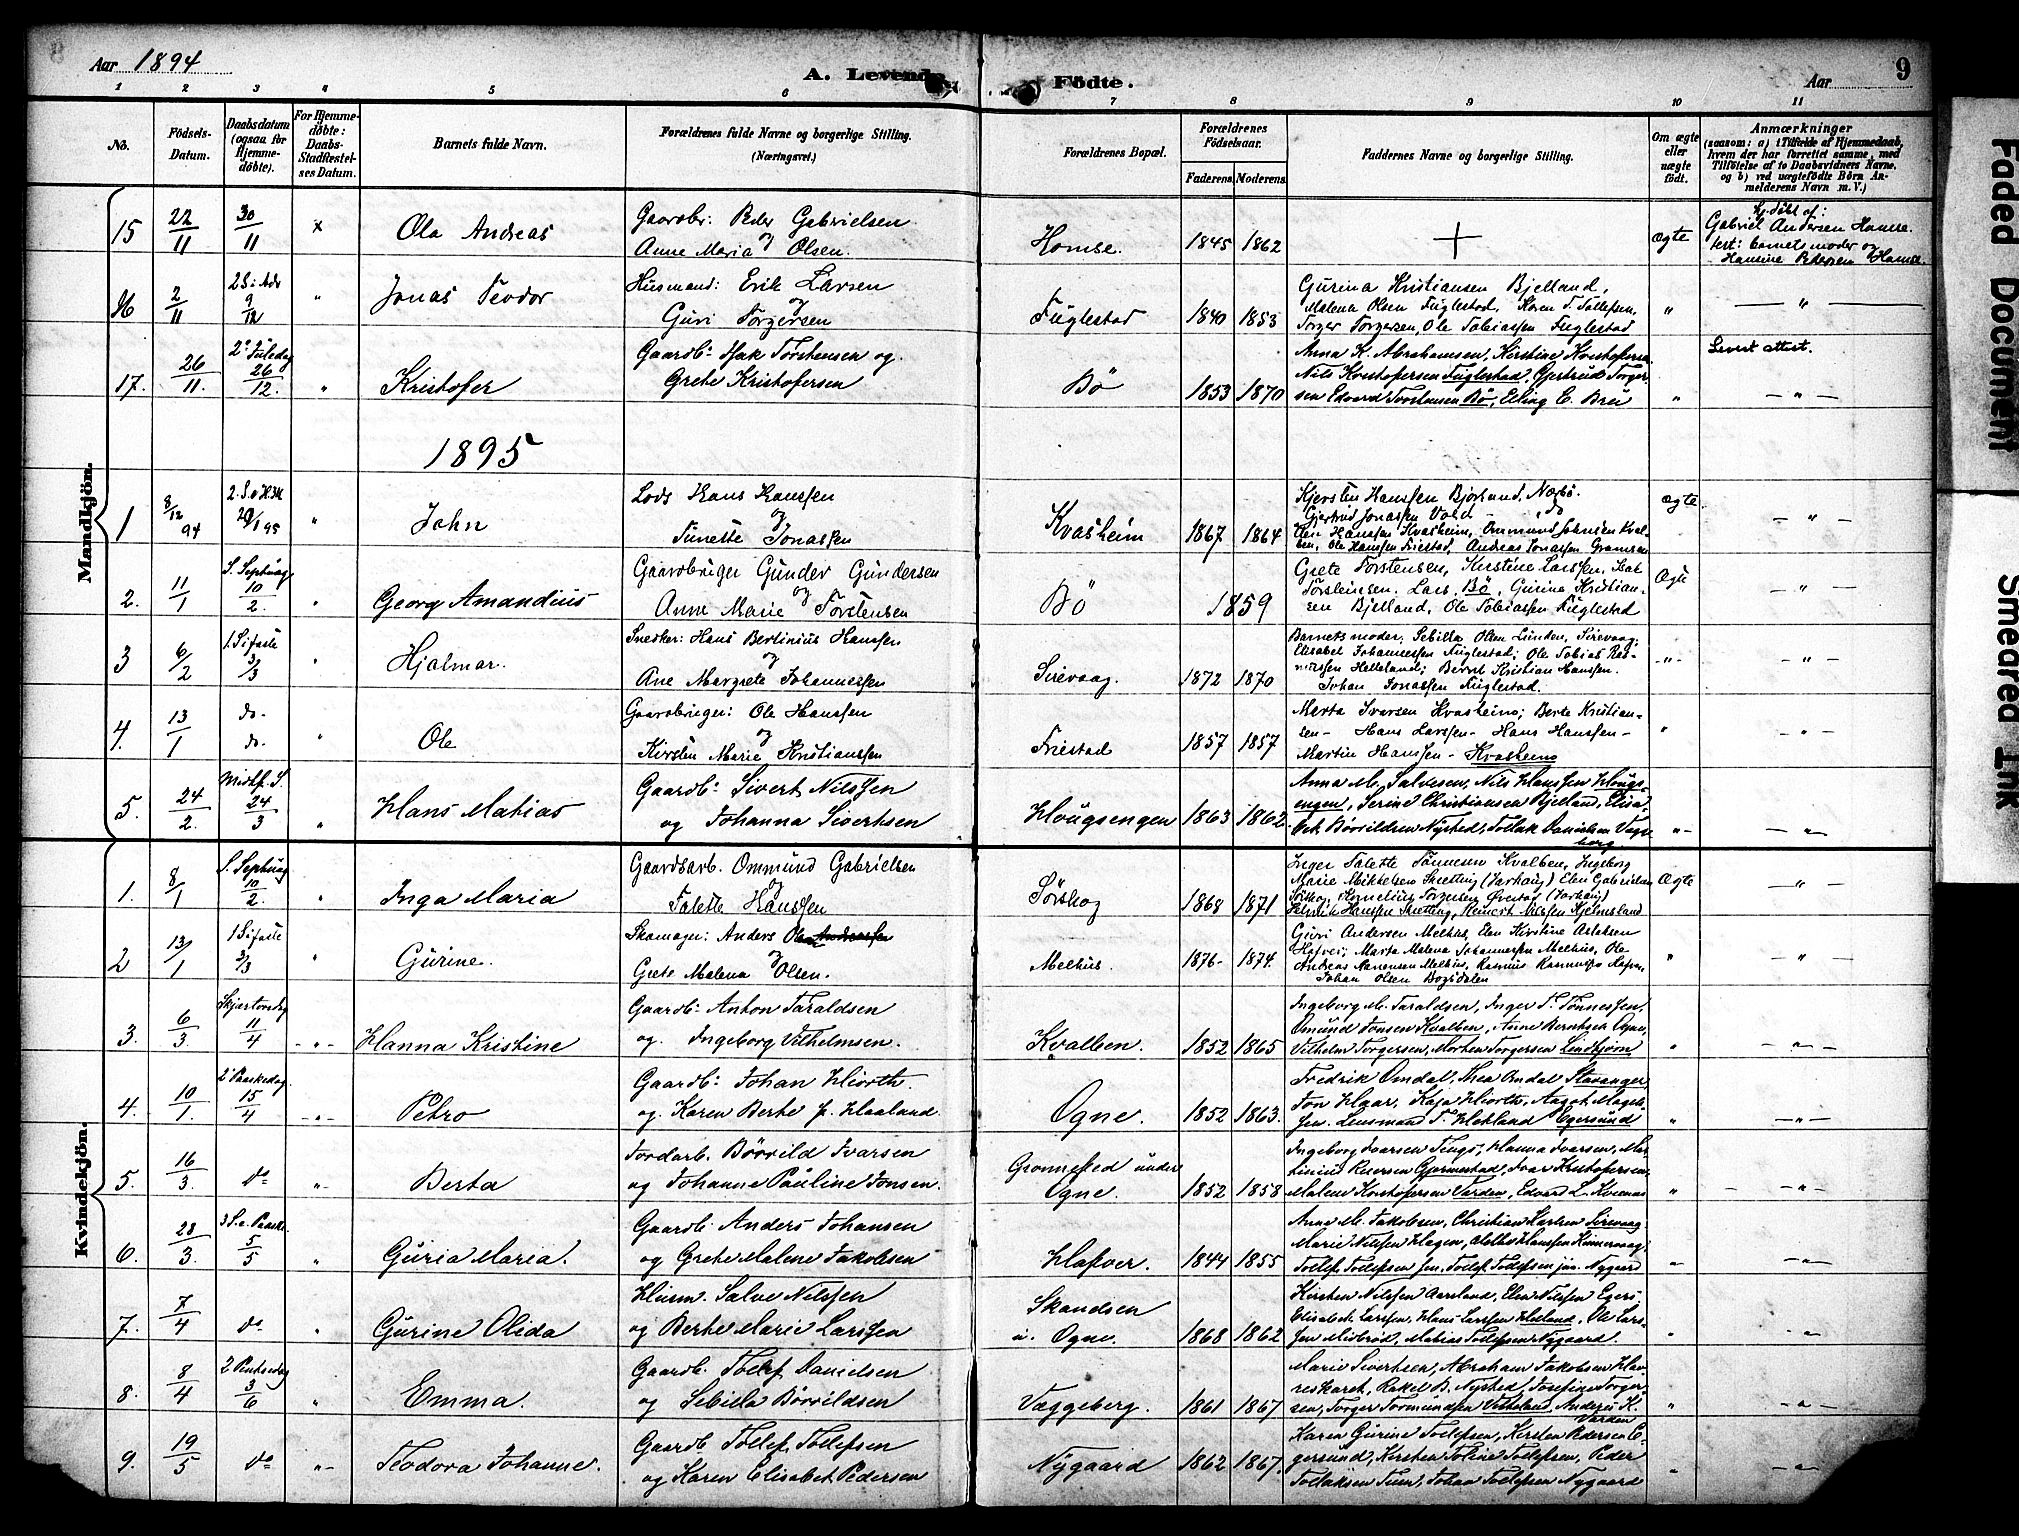 Aar 1894
A. Levende Födte.
Aar 9
1 2 3 4 5 6 7 8 9 10 11
No.
Födsels-
Datum.
Daabsdatum
(ogsaa for
Hjemme-
döbte).
For Hjemme-
döbte:
Daabs-
Stadfæstel-
ses Datum.
Barnets fulde Navn.
Forældrenes fulde Navne og borgerlige Stilling.
(Næringsvei.)
Forældrenes Bopæl.
Forældrenes
Födselsaar.
Faderens. Moderens.
Faddernes Navne og borgerlig Stilling.
Om ægte
eller
uægte
födt.
Anmærkninger
(saasom: a) i Tilfælde af Hjemmedaab,
hvem der har forrettet samme, med
Tilföielse af to Daabsvidners Navne,
og b) ved uægtefödte Börn An-
melderens Navn m. V.)
Mandkjön.
15 22/11 30/11 x Ola Andreas
Gaardbr: Peder Gabrielsen
og
Anne Maria Olsen.
Homse. 1845 1862 + Ægte
Hj.döbt af:
Gabriel Andersen Homse
test: barnets moder og
Hansine Pedersen Homse.
16 2/11 2 S i Adv 9/12 " Jonas Teodor
Husmand: Erik Larsen
og
Guri Torgersen
Fuglestad 1840 1853
Gurina Kristiansen Bjelland,
Malena Olsen Fuglestad, Karen T. Tollefsen,
Torger Torgersen, Ole Tobiassen Fuglestad
" — " —
17. 26/11. 2den Juledag 26/12. " Kristofer
Gaardb: Isak Torstensen og
Grete Kristofersen
Bö 1853 1870
Anna K. Abrahamsen, Kirstine Kristofersen
Nils Kristofersen Fuglestad, Gjertrud Torger-
sen Edvard Torstensen Bö, Elling C. Bru
" Levert attest.
— " —
1895
1 8/12 94 20/1 95 " John
Lods Hans Hanssen
og
Tunette Jonassen
Kvasheim 1867 1864
Kjersten Hanssen Bjorland, Nærbö.
Gjertrud Jonassen Vold — do
Elen Hanssen Kvasheim, Ommund Johnsen Kval-
ben, Ole Hanssen Friestad, Andreas Jonassen
Ægte — " —
2. 11/1 S. Septuag 10/2. " Georg Amandius
Gaardbruger Gunder Gundersen
og
Anne Marie Torstensen
Bö 1859
Grete Torstensen, Kirstine Larssen,
Torsteinsen. Lars Bö, Gurine Kristian-
sen Bjelland, Ole Tobiassen Fuglestad
Ægte — " —
3 6/2 1. S i faste 3/3 " Hjalmar.
Snedker: Hans Bertinius Hanssen
og
Ane Margrete Johannessen
Sirevaag. 1872 1870
Barnets moder, Sebilla Olsen Lunden, Sirevaag;
Elisabet Johannessen Fuglestad; Ole Tobias Ras-
mussen Helleland; Bernt Kristian Hanssen.
Johan Jonassen Fuglestad.
— " — — " —
4. 13/1 do. do. " Ole
Gaardbruger: Ole Hanssen
og
Kirsten Marie Kristianssen
Friestad 1857 1857
Marta Ivarsen Kvasheim; Berte Kristian-
sen — Hans Larssen — Hans Hanssen —
Martin Hanssen — Kvasheim
" — " —
5. 24/2. Midtf. S. 24/3 " Hans Matias
Gaardb: Sivert Nilssen
og Johanna Sivertsen
Hougsengen 1863 1862
Anna M. Salvesen, Nils Hanssen Hougs-
engen, Serine Christiansen Bjelland, Elisa-
bet Börrildsen Nysted, Tollak Danielsen Vagge-
berg
— " — — " —
Kvindekjön.
1. 8/1 S. Septuag 10/2. " Inga Maria
Gaardsarb. Ommund Gabrielsen
og
Talette Hanssen
Sörskog 1868 1871
Inger Talette Tönnesen Kvalben, Ingeborg
Marie Mikkelsen Skretting (Varhaug) Elen Gabrielsen
Sörskog, Kornelius Torgersen Överstad (Varhaug)
Hanssen Skretting, Reinert Nilssen Hjelmsland
Ægte — " —
2 13/1 1 S i faste 3/3 " Gurine.
Skomager: Anders Olsen
og
Grete Malena Olsen.
Melhus. 1876 — 1874.
Guri Andersen Melhus, Elen Kirstine Aslaksen
Hafver; Marta Malena Johannessen Melhus, Ole
Andreas Melhus, Rasmus
Johan Olsen Bögsdalen
" — " —
3. 6/3 Skjærtorsdag 11/4 — " — Hanna Kristine
Gaardb: Anton Taraldsen
og. Ingeborg Vilhelmsen.
Kvalben. 1852 1865
Ingeborg M. Taraldsen, Inger T. Tönnessen,
Omund Jonsen Kvalben, Anne Berntsen Ogne,
Vilhelm Torgersen, Morten Torgersen Lindtjörn
" — " —
4. 10/1. 2 Paaskedag. 15/4 — " — Petro
Gaardb: Johan Hiorth
og. Karen Berte f. Haaland.
Ogne. 1852 1863.
Fredrik Omdal, Thea Omdal Stavanger,
Jon Haar, Kaja Hiorth, Aagot Magels-
sen. Lensmand T. Hetland Egersund
" — " —
5. 16/3. do — " — Berta
Jordarb. Börrild Ivarsen
og Johanne Pauline Jonsen.
Grönnestad under
Ogne. 1852 1858
Ingeborg Ivarsen Tengs, Hanna Ivarsen, Mar-
tinius Reiersen Gjermestad, Ivar Kristofersen,
Malene Kristofersen Varden, Edvard L. Kvernas
" — " —
6. 28/3. 3 S. e. Paaske 5/5 " Guria Maria.
Gaardb. Anders Johansen
og Grete Malene Jakobsen
Hafver. 1844 1855
Anne M. Jakobsen, Christian Karlsen Sirevaag
Marie Nilssen Hagen, Hanssen Kinnervaag,
Tollef Tollefsen sen., Tollef Tollefsen jun. Nygaard
" — " —
7. 7/4 do " Gurine Olida
Husm. Salve Nilssen
og Berte Marie Larssen
Skandsen
u. Ogne. 1868 1862
Kirsten Nilssen Aarsland, Elen Nilssen Egers
Elisabet Larssen, Hans Larssen Hetland, Ole Lars-
sen Midbröd, Matias Tollefsen Nygaard.
" — " —
8. 8/4 2 Pintsedag 3/6 " Emma.
Gaardb. Tollef Danielsen
og Sebilla Börrildsen
Vaggeberg. 1861 1867
Marie Sivertsen, Abraham Jakobsen Hav-
reskaret, Rakel B. Nysted, Josefine Torger-
sen, Torger Tormundsen Vetteland, Anders K.
Varden
" — " —
9. 19/5 do — " — Teodora Johanne.
Gaardb. Tollef Tollefsen
og Karen Elisabet Pedersen
Nygaard 1862 1867.
Karen Gurine Tollefsen, Kirsten Pedersen E-
gersund, Kirsten Toline Tollefsen, Peder
Tollaksen Tuen, Johan Tollefsen Nygaard
" — " —
Faded Document
Smeared Ink